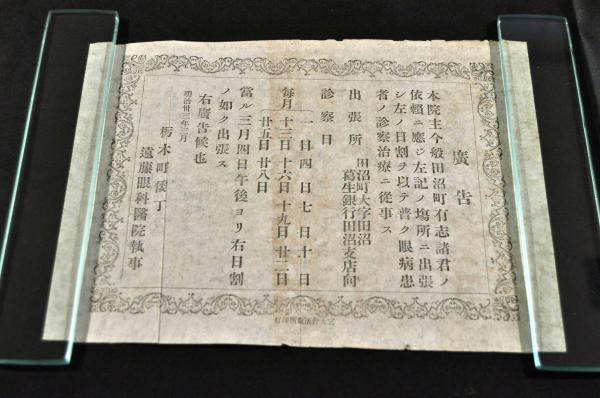 廣告
本院主今般田沼町有志諸君ノ
依頼ニ應ジ左記ノ塲所ニ出張
シ左ノ日割ヲ以テ普ク眼病患
者ノ診察治療ニ從事ス
出張所 田沼町大字田沼
葛生銀行田沼支店向
診察日
每月 一日 四日 七日 十日
十三日 十六日 十九日 廿二日
廿五日 廿八日
當ル三月四日午後ヨリ右日割
ノ如ク出張ス
右廣告候也
明治卅三年三月
栃木町倭丁
遠藤眼科醫院執事